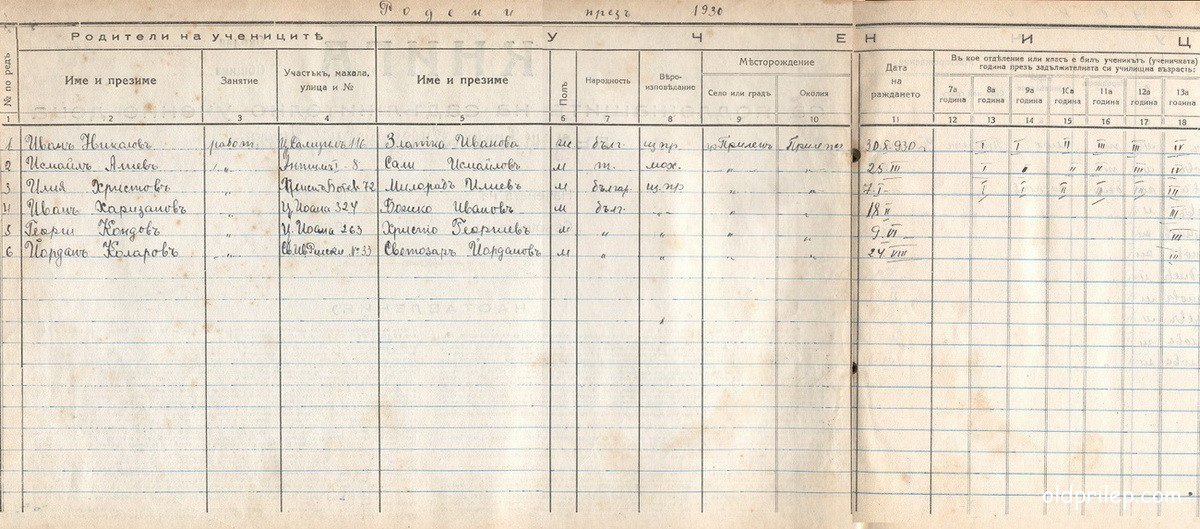 Родени презъ 1930
Родители на учениците УЧЕНИЦ
№ по редъ Име и презиме Занятие Участъкъ, махала, улица и № Име и презиме Полъ Народность Вѣро-изповѣдание Мѣсторождение Село или градъ Околия Дата на раждането Въ кое отдѣление или класъ е билъ ученикътъ (ученичката) година презъ задължителната си училищна възрасть: 7а година 8а година 9а година 10а година 11а година 12а година 13а година
1 2 3 4 5 6 7 8 9 10 11 12 13 14 15 16 17 18
1 Иванъ работ. 116 Златка Иванова бълг. Прилепъ 30.8.930 I I II III III IV
2 Исмаилъ Алиевъ " 8 Сали Исмаиловъ м т. мох. " " 25.III I " II II III III
3 Илия Христовъ " Христо Ботевъ 72 Милорадъ Илиевъ м българ. " " 7.I I I II II III III
4 Иванъ Харизановъ " Ц. Иоана 324 Иванов м бълг. " " " 18.II III
5 Георги Кондовъ " Ц. Иоана 263 Христо Георгиевъ м " " " " 9.VI III
6 Йорданъ Коларовъ " №33 Светозаръ Йордановъ м " " " " 24.VIII III
oldprilep.com